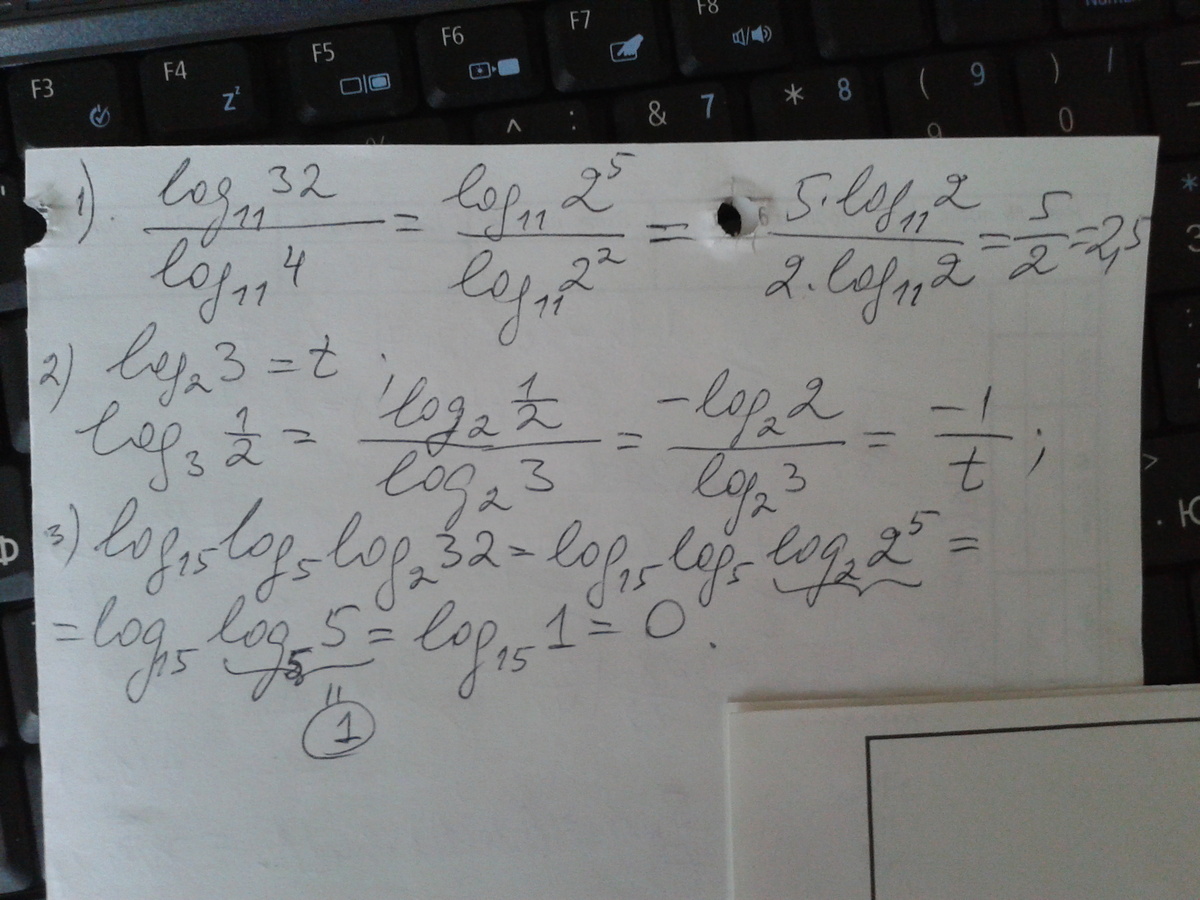 F3 F4 F5 F6 F7 F8
Zz
^ : & 7 * 8 ( 9 ) /
9 0
1). log₁₁32 / log₁₁4 = log₁₁2⁵ / log₁₁2² = 5·log₁₁2 / 2·log₁₁2 = 5/2 = 2,5
2) log₂3 = t ;
log₃ 1/2 = log₂ 1/2 / log₂3 = -log₂2 / log₂3 = -1/t ;
3) log₁₅log₅log₂32 = log₁₅log₅log₂2⁵ =
= log₁₅ log₅5 = log₁₅1 = 0.
"
1
Ф
. Ю